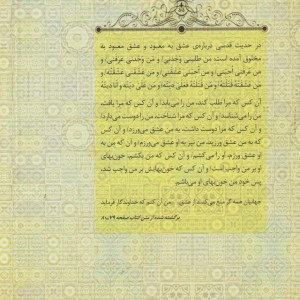 در حدیث قدسی درباره‌ی عشق به معبود و عشق معبود به
مخلوق آمده است: من طلبنی وجدنی/ و من وجدنی عرفنی/ و
من عرفنی احبنی/ و من احبنی عشقنی/ و من عشقنی عشقته/ و
من عشقته قتلته/ و من قتلته فعلی دیته/ و من علی دیته و انا دیته/
آن کس که مرا طلب کند، من را می‌یابد/ و آن کس که مرا یافت،
من را می‌شناسد/ و آن کس که مرا شناخت من را دوست می‌دارد/
و آن کس که مرا دوست داشت، به من عشق می‌ورزد/ و آن کس
که به من عشق ورزید، من نیز به او عشق می‌ورزم/ و آن که من به
او عشق ورزم، او را می‌کشم/ و آن کس که من بکشم، خون‌بهای
او بر من واجب است/ و آن کس که خون‌بهایش بر من واجب شد،
پس خود من خون‌بهای او می‌باشم.
جهانیان همه گر منع می‌کنند از عشق، من آن کنم که خداوندگار فرماید
برگشته شده از متن کتاب صفحه ۲۹